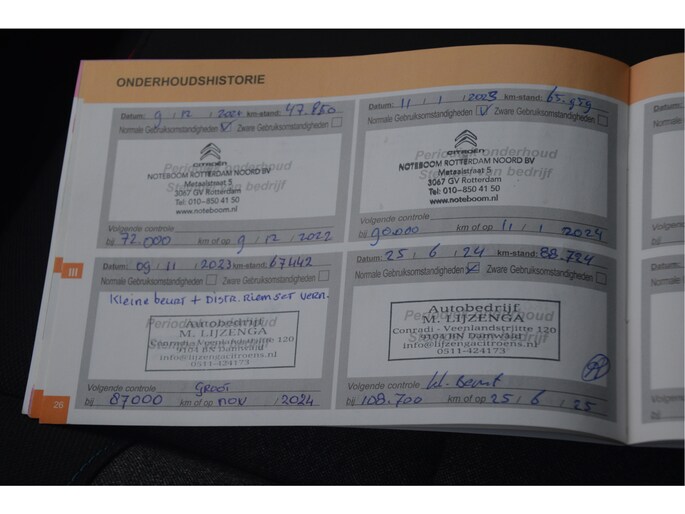 ONDERHOUDSHISTORIE
Datum: 9 / 12 / 2021 km-stand: 47.850
Normale Gebruiksomstandigheden Zware Gebruiksomstandigheden
Periodiek onderhoud
CITROËN
NOTEBOOM ROTTERDAM NOORD BV
Metaalstraat 5
3067 GV Rotterdam
Tel: 010-850 41 50
www.noteboom.nl
Volgende controle
bij 72.000 km of op 9 / 12 / 2022
Datum: 11 / 1 / 2023 km-stand: 65.959
Normale Gebruiksomstandigheden Zware Gebruiksomstandigheden
Periodiek onderhoud
CITROËN
NOTEBOOM ROTTERDAM NOORD BV
Metaalstraat 5
3067 GV Rotterdam
Tel: 010-850 41 50
www.noteboom.nl
Volgende controle
bij 90.000 km of op 11 / 1 / 2024
III
Datum: 09 / 11 / 2023 km-stand: 67442
Normale Gebruiksomstandigheden Zware Gebruiksomstandigheden
Kleine beurt + DISTR. RIEMSET VERN.
Autobedrijf
M. LIJZENGA
9104 BN Damwald
info@lijzengacitroens.nl
0511-424173
Volgende controle GROOT
bij 87000 km of op NOV / 2024
Datum: 25 / 6 / 24 km-stand: 88.724
Normale Gebruiksomstandigheden Zware Gebruiksomstandigheden
Autobedrijf
M. LIJZENGA
Conradi - Veenlandstrjitte 120
9104 BN Damwald
info@lijzengacitroens.nl
0511-424173
Volgende controle kl. Beurt
bij 108.700 km of op 25 / 6 / 25
26